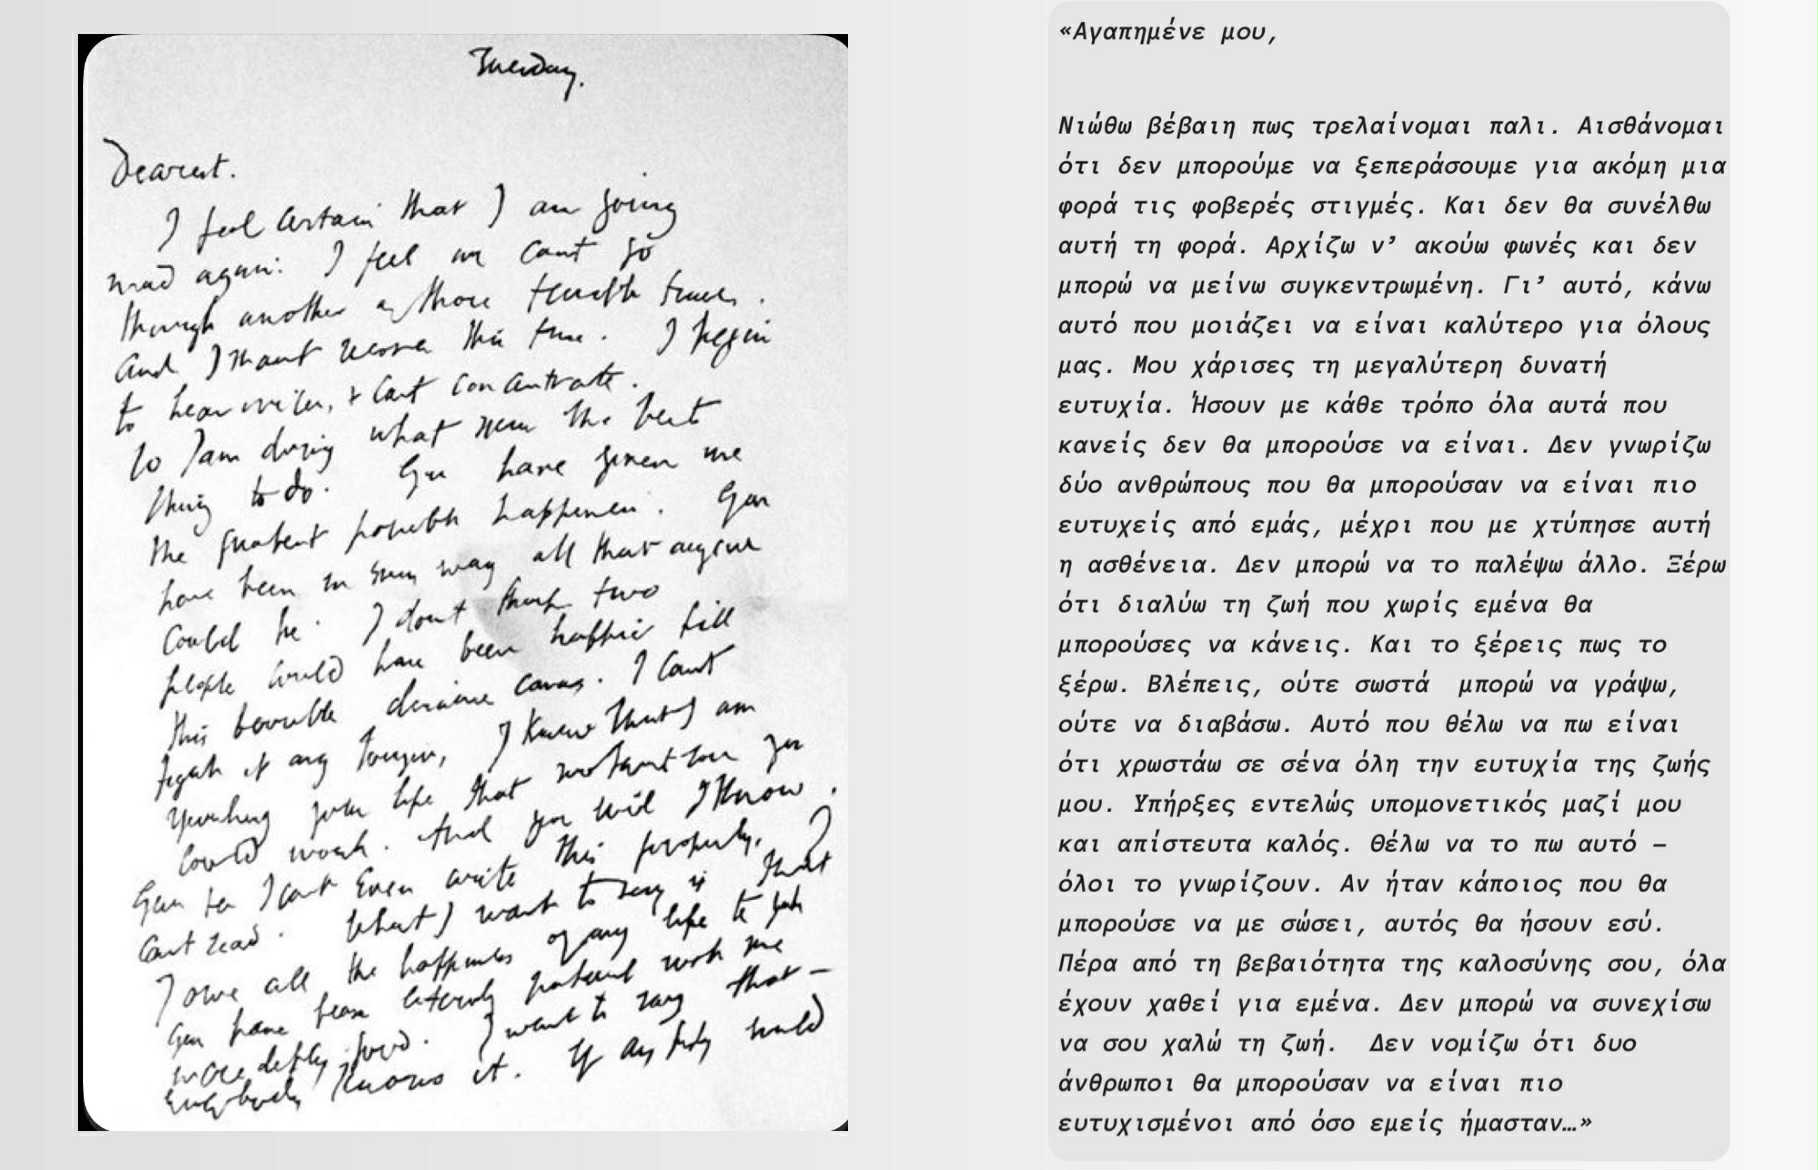 Tuesday.
Dearest.
I feel certain that I am going
mad again: I feel we cant go
through another of those terrible times.
And I shant recover this time. I begin
to hear voices, & cant concentrate.
So I am doing what seems the best
thing to do. You have given me
the greatest possible happiness. You
have been in every way all that anyone
could be. I dont think two
people could have been happier till
this terrible disease came. I cant
fight it any longer, I know that I am
spoiling your life that without me you
could work. And you will I know.
You see I cant even write this properly. I
cant read. What I want to say is that
I owe all the happiness of my life to you
You have been entirely patient with me
& incredibly good. I want to say that —
everybody knows it. If anybody could
«Αγαπημένε μου,
Νιώθω βέβαιη πως τρελαίνομαι παλι. Αισθάνομαι
ότι δεν μπορούμε να ξεπεράσουμε για ακόμη μια
φορά τις φοβερές στιγμές. Και δεν θα συνέλθω
αυτή τη φορά. Αρχίζω ν’ ακούω φωνές και δεν
μπορώ να μείνω συγκεντρωμένη. Γι’ αυτό, κάνω
αυτό που μοιάζει να είναι καλύτερο για όλους
μας. Μου χάρισες τη μεγαλύτερη δυνατή
ευτυχία. Ήσουν με κάθε τρόπο όλα αυτά που
κανείς δεν θα μπορούσε να είναι. Δεν γνωρίζω
δύο ανθρώπους που θα μπορούσαν να είναι πιο
ευτυχείς από εμάς, μέχρι που με χτύπησε αυτή
η ασθένεια. Δεν μπορώ να το παλέψω άλλο. Ξέρω
ότι διαλύω τη ζωή που χωρίς εμένα θα
μπορούσες να κάνεις. Και το ξέρεις πως το
ξέρω. Βλέπεις, ούτε σωστά  μπορώ να γράψω,
ούτε να διαβάσω. Αυτό που θέλω να πω είναι
ότι χρωστάω σε σένα όλη την ευτυχία της ζωής
μου. Υπήρξες εντελώς υπομονετικός μαζί μου
και απίστευτα καλός. Θέλω να το πω αυτό –
όλοι το γνωρίζουν. Αν ήταν κάποιος που θα
μπορούσε να με σώσει, αυτός θα ήσουν εσύ.
Πέρα από τη βεβαιότητα της καλοσύνης σου, όλα
έχουν χαθεί για εμένα. Δεν μπορώ να συνεχίσω
να σου χαλώ τη ζωή.  Δεν νομίζω ότι δυο
άνθρωποι θα μπορούσαν να είναι πιο
ευτυχισμένοι από όσο εμείς ήμασταν…»